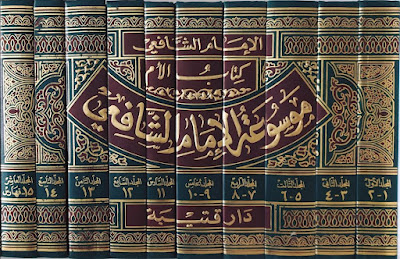 الإمام الشافعي
كتاب الأم
موسوعة الإمام الشافعي
المجلد الأول المجلد الثاني المجلد الثالث المجلد الرابع المجلد الخامس المجلد السادس المجلد السابع المجلد الثامن المجلد التاسع المجلد العاشر
١-٢ ٣-٤ ٥-٦ ٧-٨ ٩-١٠ ١١ ١٢ ١٣ ١٤ ١٥
دار قتيبة